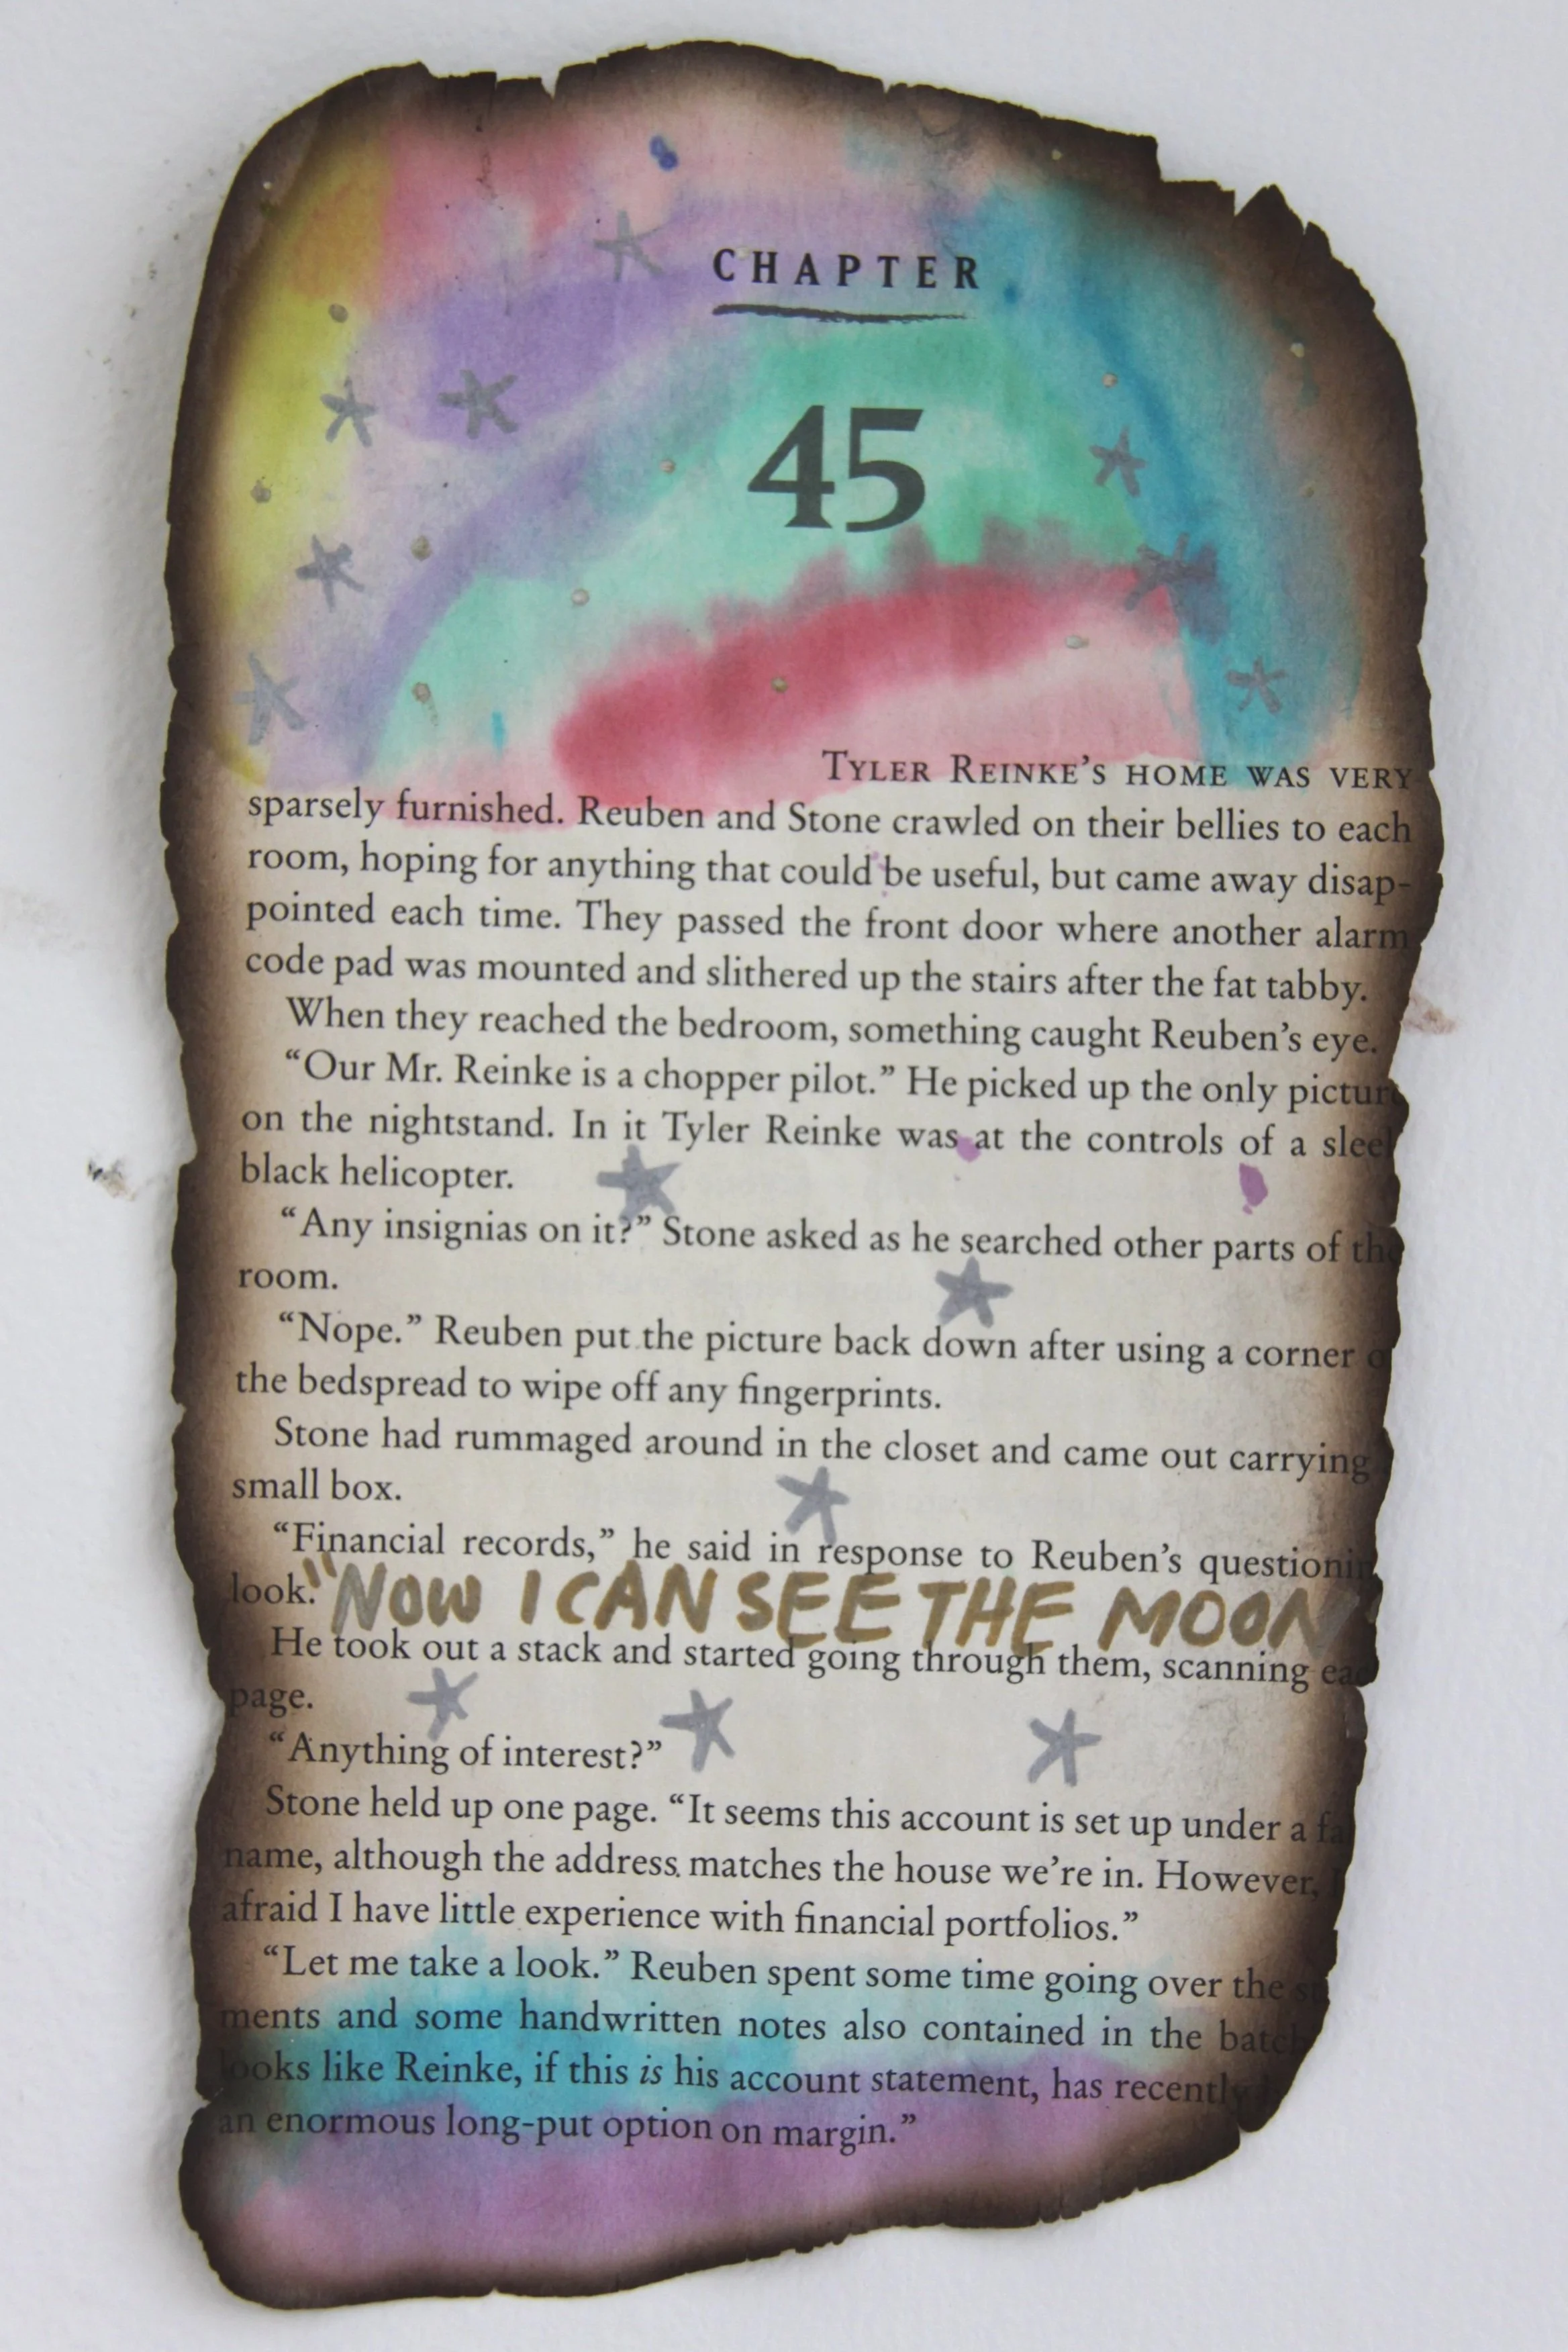 CHAPTER
45
TYLER REINKE'S HOME WAS VERY
sparsely furnished. Reuben and Stone crawled on their bellies to each
room, hoping for anything that could be useful, but came away disap-
pointed each time. They passed the front door where another alarm
code pad was mounted and slithered up the stairs after the fat tabby.
When they reached the bedroom, something caught Reuben's eye.
“Our Mr. Reinke is a chopper pilot.” He picked up the only pictur
on the nightstand. In it Tyler Reinke was at the controls of a slee
black helicopter.
“Any insignias on it?” Stone asked as he searched other parts of the
room.
“Nope.” Reuben put the picture back down after using a corner o
the bedspread to wipe off any fingerprints.
Stone had rummaged around in the closet and came out carrying
small box.
“Financial records,” he said in response to Reuben's questionin
look.
"NOW I CAN SEE THE MOON
He took out a stack and started going through them, scanning eac
page.
“Anything of interest?”
Stone held up one page. “It seems this account is set up under a fa
name, although the address matches the house we're in. However, I
afraid I have little experience with financial portfolios.”
“Let me take a look.” Reuben spent some time going over the st
ments and some handwritten notes also contained in the batch
looks like Reinke, if this is his account statement, has recently
an enormous long-put option on margin.”